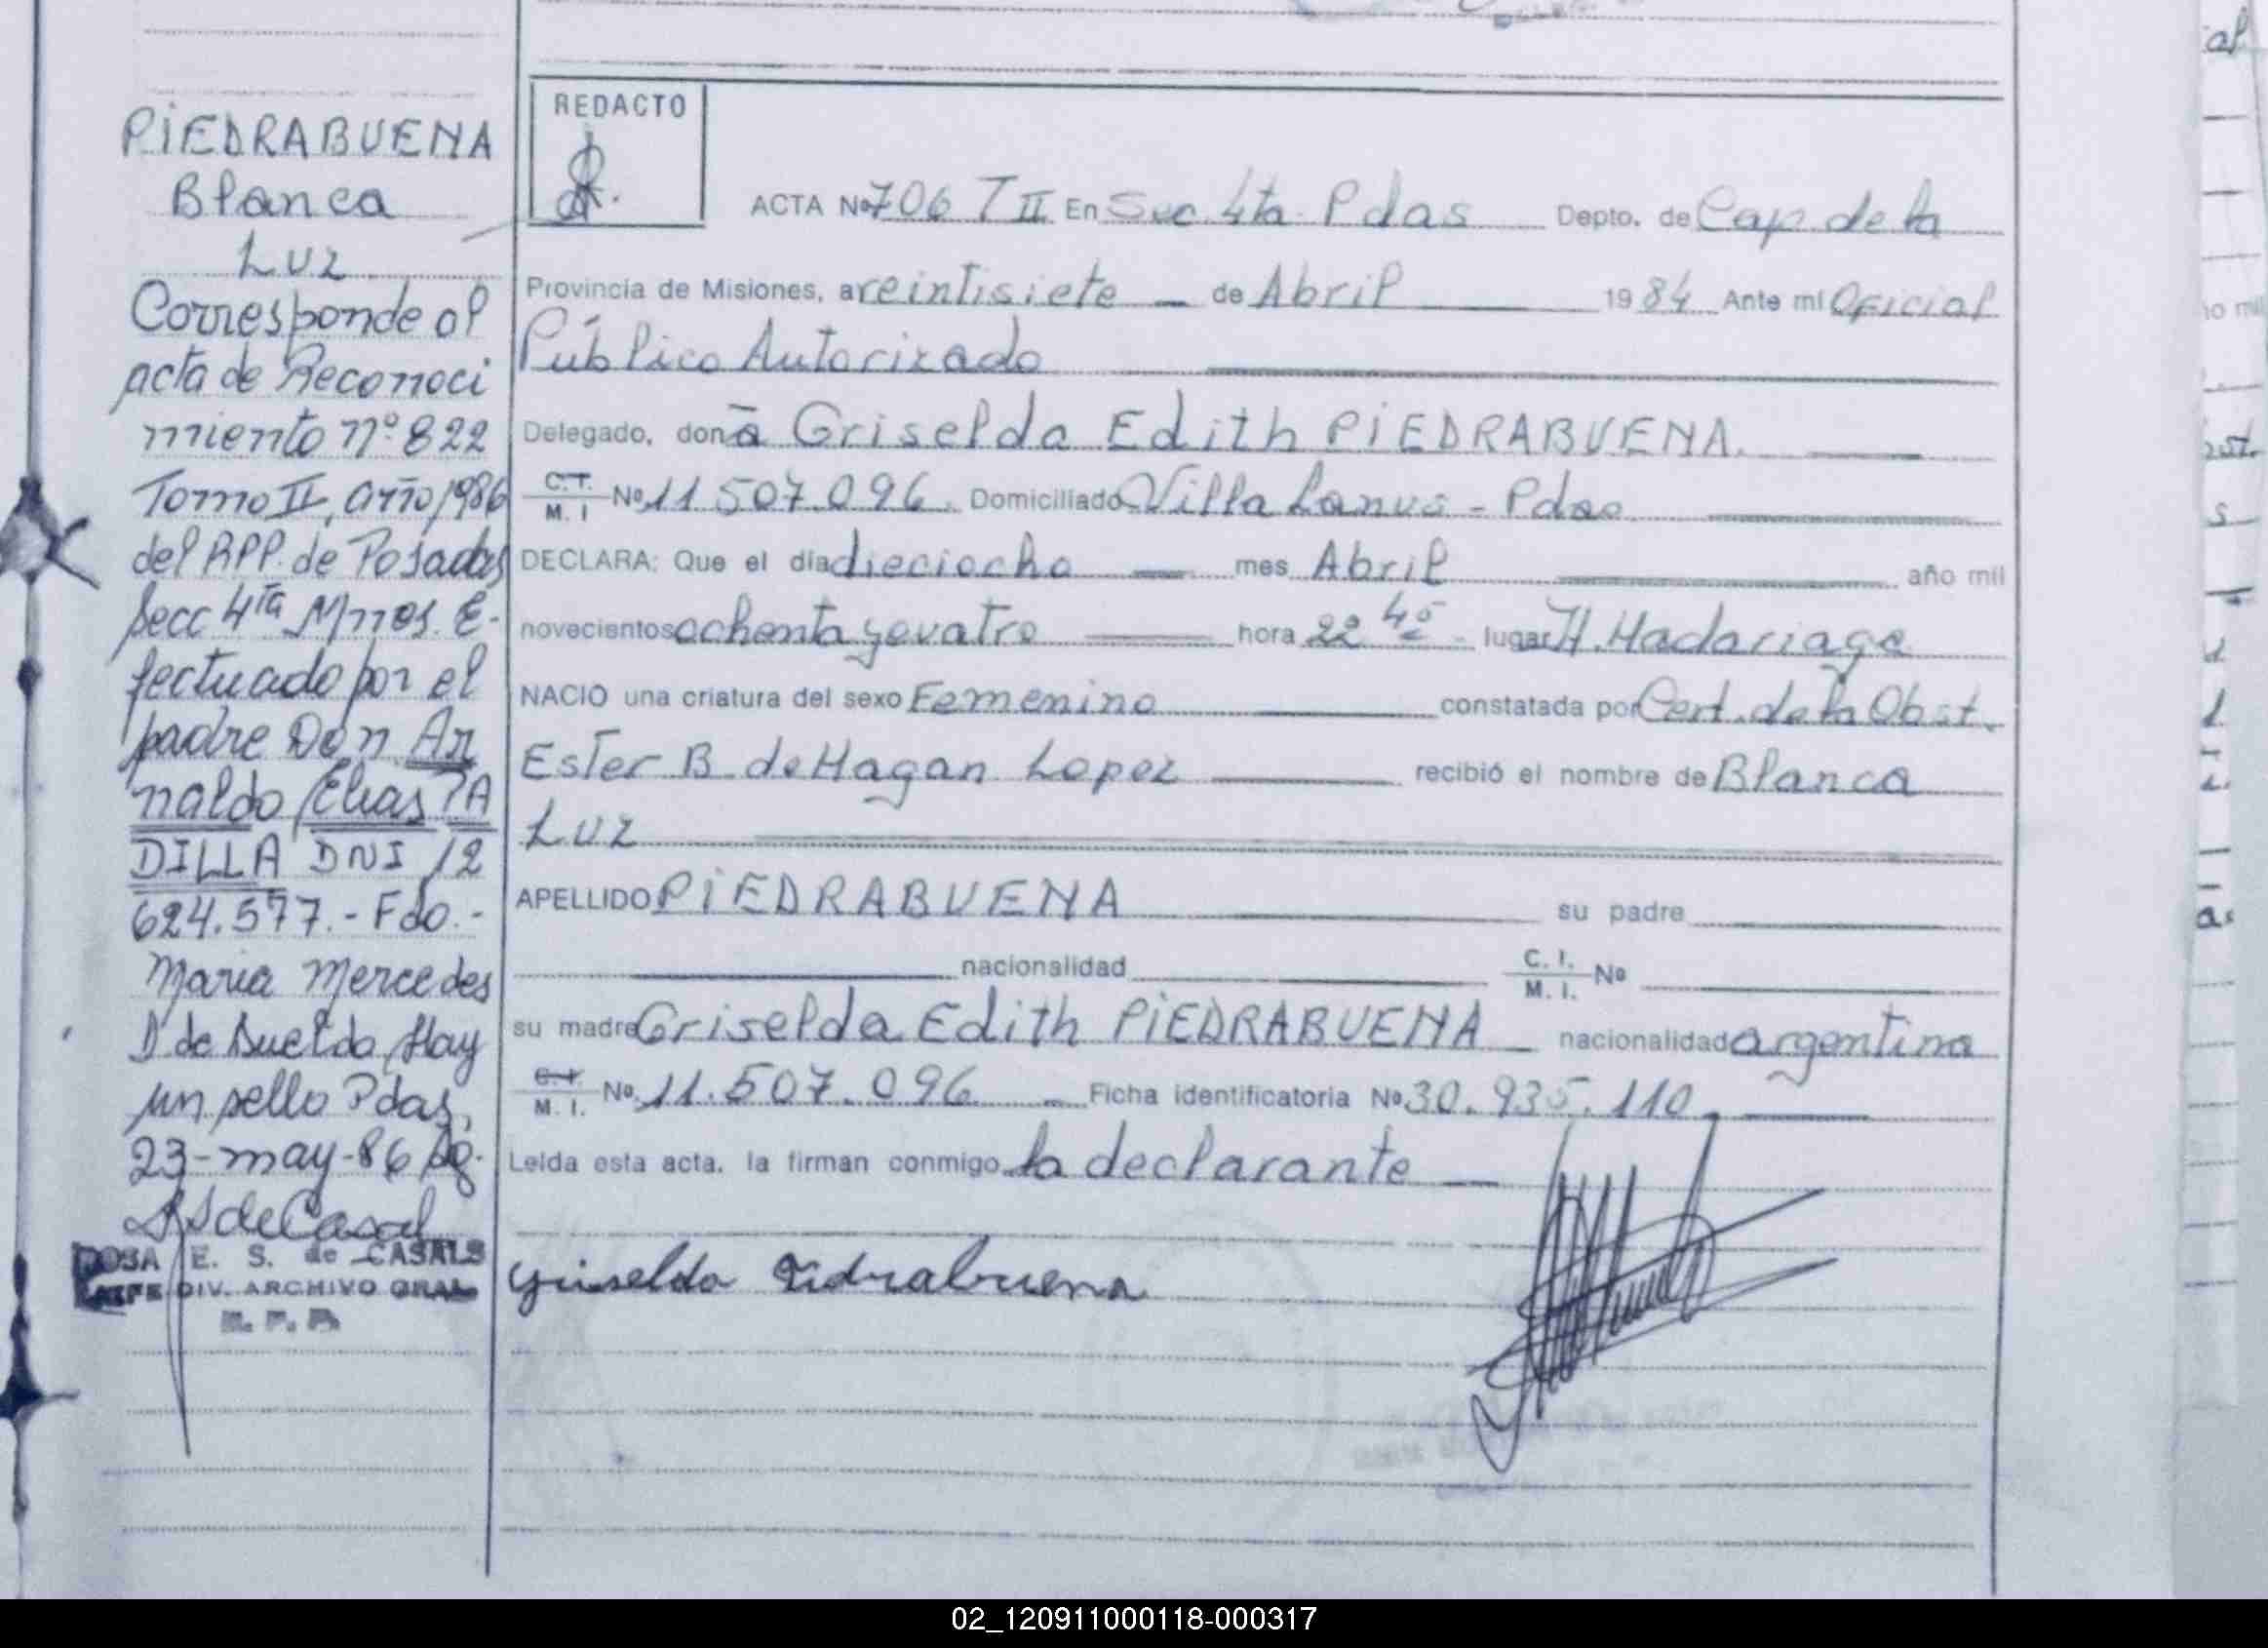 PIEDRABUENA
Blanca
Luz
Corresponde al
acta de Reconoci
miento nº 822
Tomo II, año 1986
del RPP. de Posadas
Secc 4ta Mnes. E-
fectuado por el
padre Don Ar
naldo Elias PA
DILLA DNI 12
624.577.- Fdo.-
Maria Mercedes
D de Buelda, Hay
un sello Pdas,
23-may-86
S de Casal
ROSA E. S. de CASALS
JEFE DIV. ARCHIVO GRAL
R. P. P.
REDACTO
ACTA Nº 706 T II En Sec. 4ta. Pdas Depto. de Cap. de la
Provincia de Misiones, a veintisiete de Abril 1984 Ante mí Oficial
Público Autorizado
Delegado, doña Griselda Edith PIEDRABUENA.
C.I.
M. I Nº 11.507.096. Domiciliado Villa Lanus - Pdas
DECLARA: Que el día dieciocho mes Abril año mil
novecientos ochenta y cuatro hora 22 45 lugar H. Madariaga
NACIO una criatura del sexo Femenino constatada por Cert. de la Obst.
Ester B de Hagan Lopez recibió el nombre de Blanca
Luz
APELLIDO PIEDRABUENA su padre
nacionalidad C. I.
M. I. Nº
su madre Griselda Edith PIEDRABUENA nacionalidad argentina
C.I.
M. I. Nº 11.507.096 Ficha identificatoria Nº 30.935.110.
Leída esta acta, la firman conmigo la declarante
Griselda Piedrabuena
02_120911000118-000317